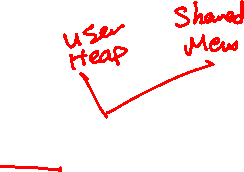 user
Heap
Shared
Mem